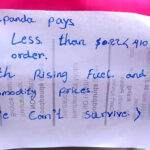 panda pays
Less than $0.22/4,910
order.
th Rising Fuel and
mmodity prices
e Can't survive)